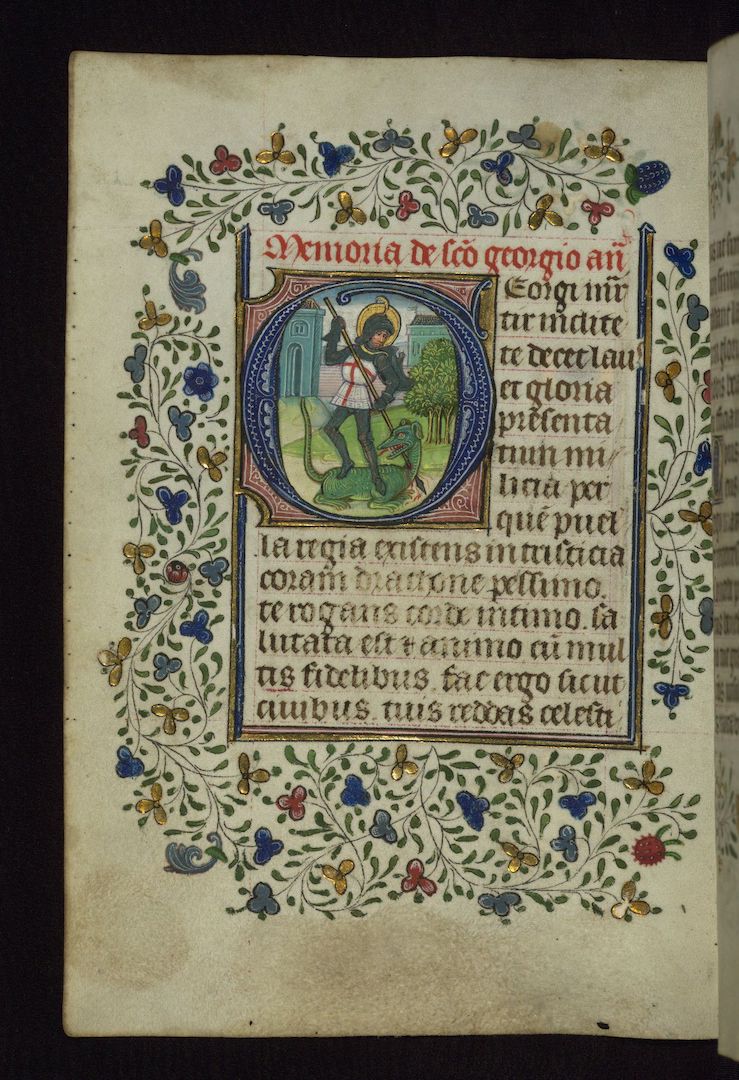 Memoria de sc̄o georgio an̄
Eorgi mr̄
tir inclite
te decet laus
et gloria
presenta
tium mi
licia per
quē puel
la regia existens in tristicia
coram dracone pessimo.
te rogans corde intimo. sa
lutata est
animo cū mul
tis fidelibus. fac ergo sicut
civibus. tuis reddas celesti